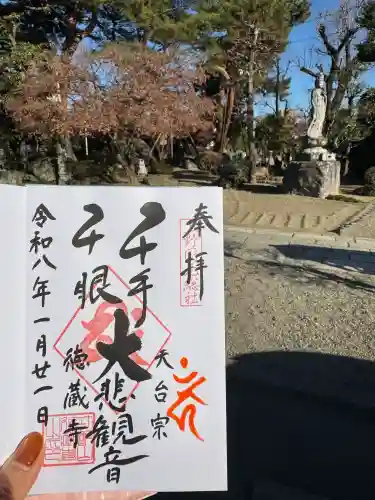 奉拝
千手
千眼
大悲観音
天台宗
徳蔵寺
令和八年一月廿一日